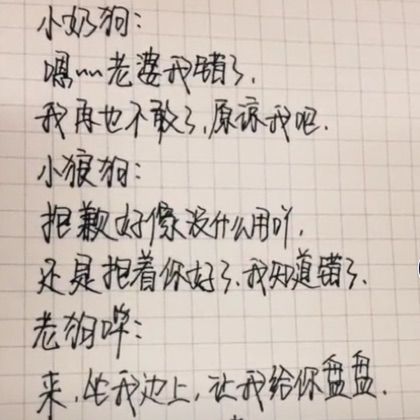 小奶狗：
嗯~~老婆我错了，
我再也不敢了，原谅我吧．
小狼狗：
抱歉好像没什么用吖，
还是抱着你好了．我知道错了．
老狗哔：
来，坐我边上，让我给你盘盘．